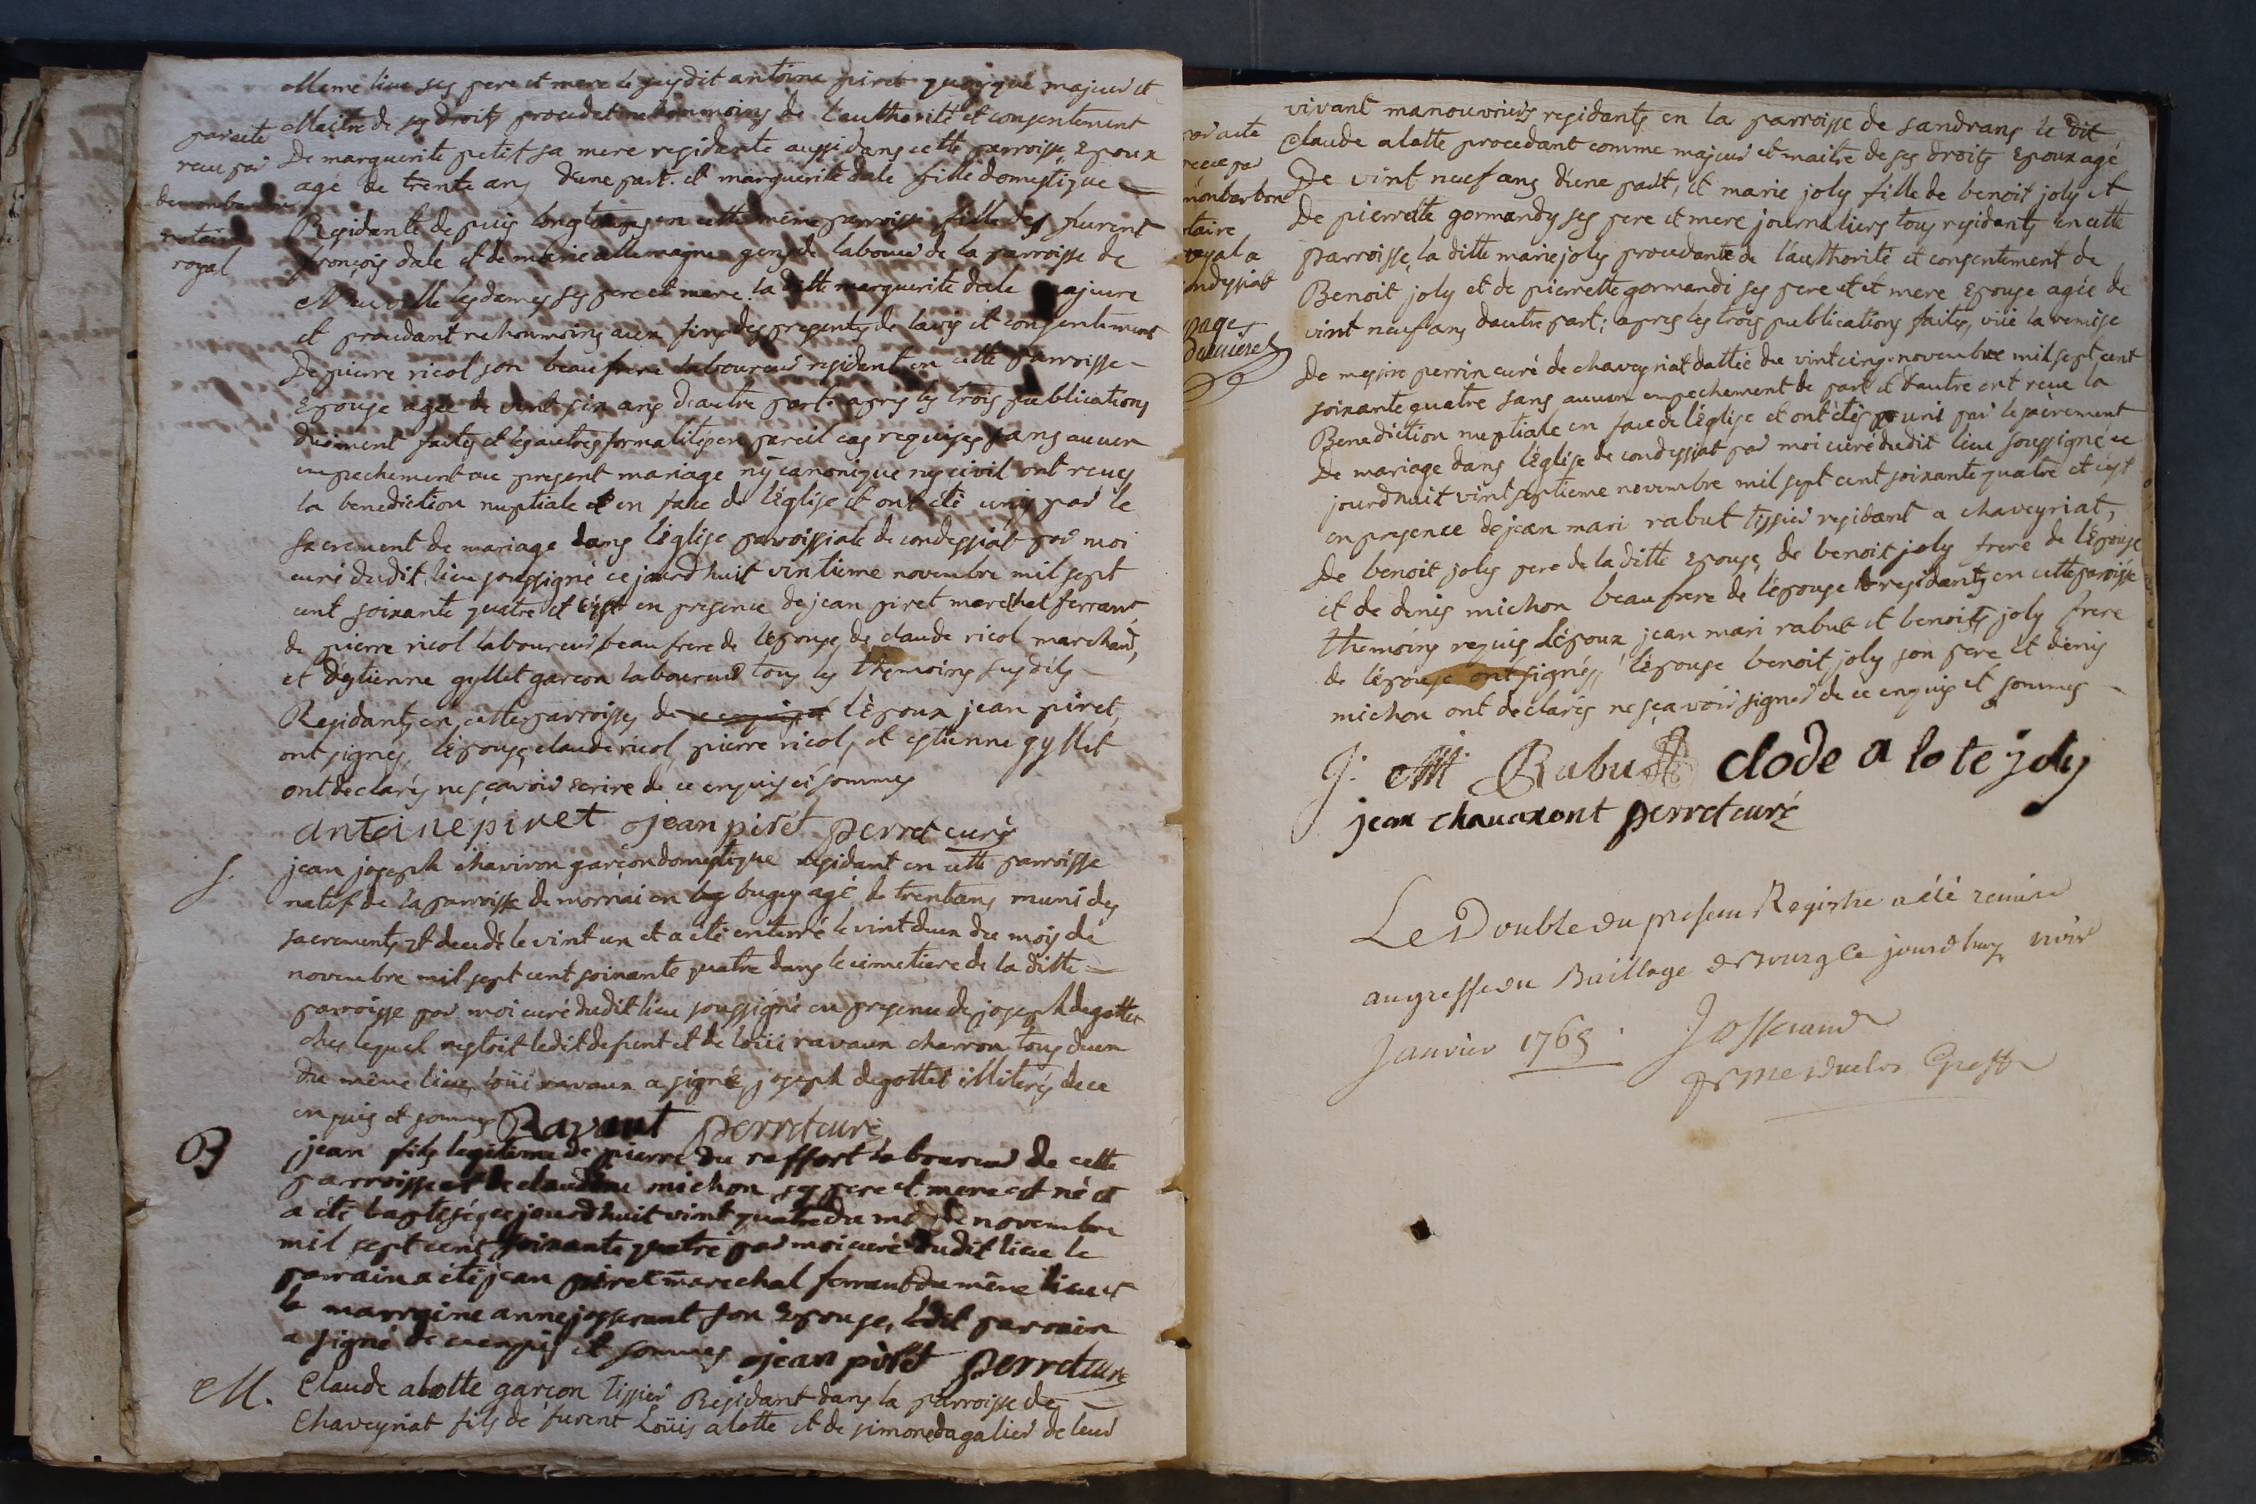 Meme lieu ses pere et mere le susdit antoine piret quoique majeur et
Maitre de ses droits procedet nehonmoins de l'authorité et consentement
De marguerite petit sa mere residante aussi dans cette parroisse Epoux
agé de trente ans d'une part. et marguerite dale fille domestique
Residante depuis longtemps en cette même parroisse fille des furent
françois dale et de marie allemagne gens de labour de la parroisse de
Neuville les dames ses pere et mere. la ditte marguerite dale majeure
et procedant nehonmoins aux fins des presentes de lavis et consentement
De pierre ricol son beaufrere laboureur residant en cette parroisse
Epouse agée de vint six ans d'autre part. apres les trois publications
duement faites et les autres formalités en pareil cas requises sans aucun
empechement au present mariage ny canonique ny civil ont reçus
la benediction nuptiale et en face de l'église et ont été unis par le
sacrement de mariage dans l'église parroissiale de condessiat par moi
curé dudit lieu soussigné ce jourdhuit vintieme novembre mil sept
cent soixante quatre et c'est en presence de jean piret marechal ferrant,
de pierre ricol laboureur beaufrere de lepouse de claude ricol marchand,
et d'estienne gyllet garcon laboureur tous les themoins susdits
Residants en cette parroisse, de ce enquis et l'époux jean piret,
ont signés, l'épouse, claude ricol, pierre ricol, et estienne gyllet
ont declarés ne sçavoir écrire de ce enquis et sommes
antoine piret jean piret perret curé
par acte
recu par
demonbarbon
notaire
royal
S. jean joseph chaviron garçon domestique residant en cette parroisse
natif de la parroisse de mornai en bug bugey agé de trent ans muni des
sacrements et decedé le vint un et a été enterré le vint deux du mois de
novembre mil sept cent soixante quatre dans le cimetiere de la ditte
parroisse par moi curé dudit lieu soussigné en presence de joseph degottet
ches lequel restoit ledit defunt et de loüis ravaux charron tous deux
du même lieu, loüis ravaux a signé, joseph degottet illiterés de ce
enquis et sommes Ravaut perret curé
B jean fils legitime de pierre du raffort laboureur de cette
parroisse et de claudine michon ses pere et mere est né et
a été baptesé ce jourdhuit vint quatre du mois de novembre
mil sept cent soixante quatre par moi curé dudit lieu le
parrain a été jean piret marechal ferrant du même lieu et
la marraine anne josserant son Epouse, ledit parrain
a signé de ce enquis et sommes jean piret perret curé
M. Claude alotte garçon tissier Residant dans la parroisse de
Chaveyriat fils de furent Loüis alotte et de simone dagalier de leur
vivant manouvriers residants en la parroisse de sandrans le dit
Claude alotte procedant comme majeur et maitre de ses droits Epoux agé
De vint neuf ans d'une part, et marie joly fille de benoit joly et
De pierrette gormandy ses pere et mere journaliers tous residants en cette
parroisse, la ditte marie joly procedante de l'authorité et consentement de
Benoit joly et de pierrette gormandi ses pere et et mere Epouse agée de
vint neuf ans d'autre part; apres les trois publications faites, vüe la remise
De messire perrin curé de chaveyriat dattée du vint cinq novembre mil sept cent
soixante quatre sans aucun empechement de part et d'autre ont reçue la
Benediction nuptiale en face de l'église et ont étés uni par le sacrement
De mariage dans l'église de condessiat par moi curé dudit lieu soussigné ce
jourdhuit vint septieme novembre mil sept cent soixante quatre et c'est
en presence de jean mari rabut tissier residant a chaveyriat,
De benoit joly pere de la ditte epouse, de benoit joly frere de l'épouse
et de denis michon beaufrere de l'épouse residants en cette parroisse
themoins requis L'époux jean mari rabut et benoits joly frere
de l'épouse ont signés, l'épouse benoit joly son pere et denis
michon ont declarés ne sçavoir signer de ce enquis et sommes
par acte
recue par
monbarbon
otaire
royal a
ondessiat
page
Derniere
J. M Rabut clode a lote joly
jean chaucront perret curé
Le Double du present Registre a été remise
au greffe du Bailliage de Bourg Ce jourdhuy
Janvier 1765. Josserand